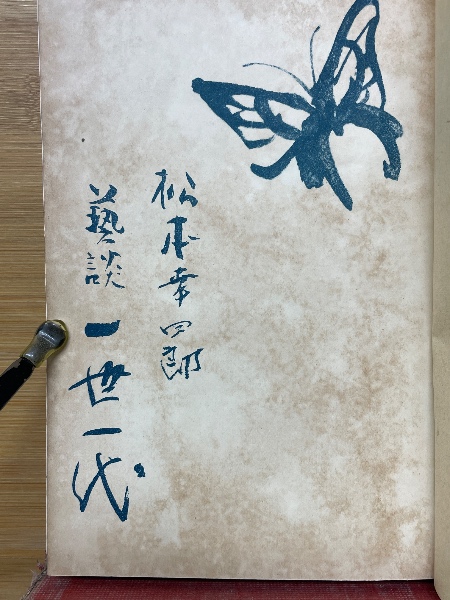 松本幸四郎
藝談 一世一代